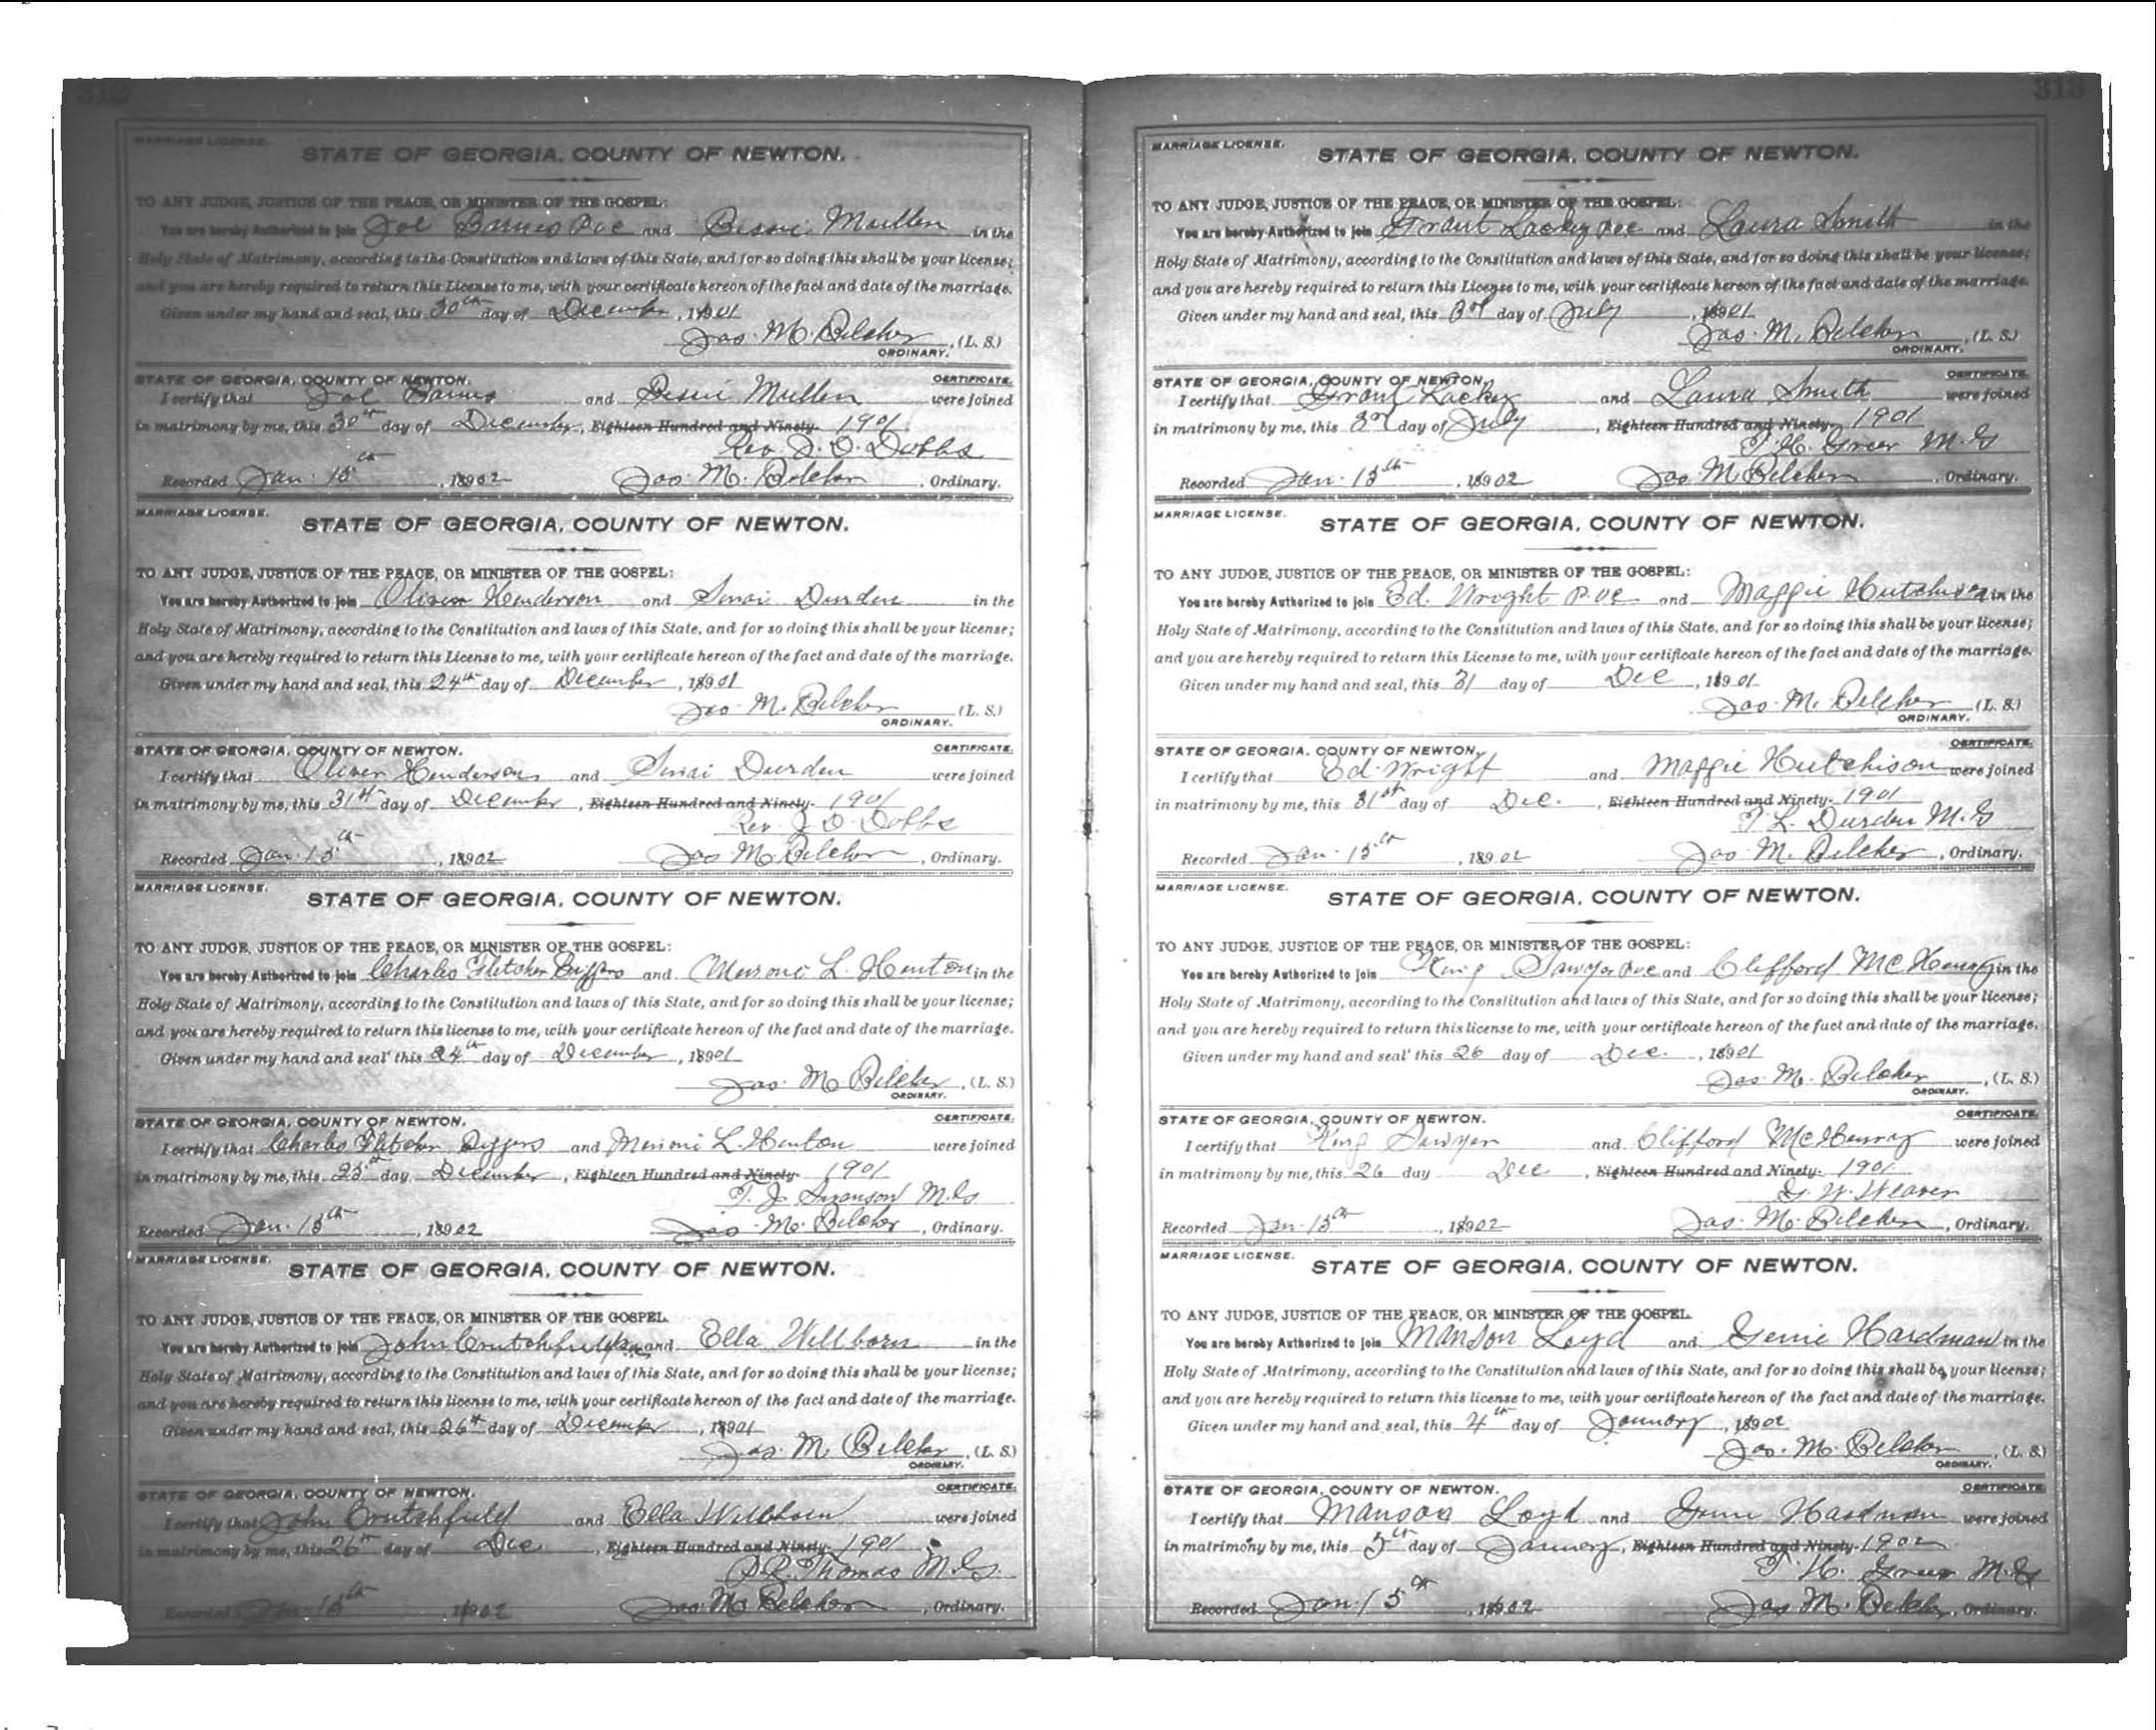 312
MARRIAGE LICENSE.
STATE OF GEORGIA, COUNTY OF NEWTON.
TO ANY JUDGE, JUSTICE OF THE PEACE, OR MINISTER OF THE GOSPEL:
You are hereby Authorized to join Joe Barnes and Bessie Mullen in the
Holy State of Matrimony, according to the Constitution and laws of this State, and for so doing this shall be your license;
and you are hereby required to return this License to me, with your certificate hereon of the fact and date of the marriage.
Given under my hand and seal, this 30th day of December, 1901
Jas. M. Belcher, (L. S.)
ORDINARY.
STATE OF GEORGIA, COUNTY OF NEWTON. CERTIFICATE.
I certify that Joe Barnes and Bessie Mullen were joined
in matrimony by me, this 30th day of December, Eighteen Hundred and Ninety- 1901
Rev. J. D. Dobbs
Recorded Jan. 15th, 1902 Jas. M. Belcher, Ordinary.
MARRIAGE LICENSE.
STATE OF GEORGIA, COUNTY OF NEWTON.
TO ANY JUDGE, JUSTICE OF THE PEACE, OR MINISTER OF THE GOSPEL:
You are hereby Authorized to join Oliver Henderson and Sinai Durden in the
Holy State of Matrimony, according to the Constitution and laws of this State, and for so doing this shall be your license;
and you are hereby required to return this License to me, with your certificate hereon of the fact and date of the marriage.
Given under my hand and seal, this 24th day of December, 1901
Jas. M. Belcher (L. S.)
ORDINARY.
STATE OF GEORGIA, COUNTY OF NEWTON. CERTIFICATE.
I certify that Oliver Henderson and Sinai Durden were joined
in matrimony by me, this 31st day of December, Eighteen Hundred and Ninety- 1901
Rev. J. D. Dobbs
Recorded Jan. 15th, 1902 Jas. M. Belcher, Ordinary.
MARRIAGE LICENSE.
STATE OF GEORGIA, COUNTY OF NEWTON.
TO ANY JUDGE, JUSTICE OF THE PEACE, OR MINISTER OF THE GOSPEL:
You are hereby Authorized to join Charles Fletcher Biggers and L. Hinton in the
Holy State of Matrimony, according to the Constitution and laws of this State, and for so doing this shall be your license;
and you are hereby required to return this license to me, with your certificate hereon of the fact and date of the marriage.
Given under my hand and seal this 24th day of December, 1901
Jas. M. Belcher, (L. S.)
ORDINARY.
STATE OF GEORGIA, COUNTY OF NEWTON. CERTIFICATE.
I certify that Charles Fletcher Biggers and L. Hinton were joined
in matrimony by me, this 25th day December, Eighteen Hundred and Ninety- 1901
T. J. Swanson M.G
Recorded Jan. 15th, 1902 Jas. M. Belcher, Ordinary.
MARRIAGE LICENSE.
STATE OF GEORGIA, COUNTY OF NEWTON.
TO ANY JUDGE, JUSTICE OF THE PEACE, OR MINISTER OF THE GOSPEL.
You are hereby Authorized to join John Crutchfield and Ella Willborn in the
Holy State of Matrimony, according to the Constitution and laws of this State, and for so doing this shall be your license;
and you are hereby required to return this license to me, with your certificate hereon of the fact and date of the marriage.
Given under my hand and seal, this 26th day of December, 1901
Jas. M. Belcher, (L. S.)
ORDINARY.
STATE OF GEORGIA, COUNTY OF NEWTON. CERTIFICATE.
I certify that John Crutchfield and Ella Willborn were joined
in matrimony by me, this 26th day of Dec, Eighteen Hundred and Ninety- 1901
Thomas M.G.
Recorded Jan. 15th, 1902 Jas. M. Belcher, Ordinary.
313
MARRIAGE LICENSE.
STATE OF GEORGIA, COUNTY OF NEWTON.
TO ANY JUDGE, JUSTICE OF THE PEACE, OR MINISTER OF THE GOSPEL:
You are hereby Authorized to join Grant Lackey and Laura Smith in the
Holy State of Matrimony, according to the Constitution and laws of this State, and for so doing this shall be your license;
and you are hereby required to return this License to me, with your certificate hereon of the fact and date of the marriage.
Given under my hand and seal, this 3rd day of July, 1901
Jas. M. Belcher, (L. S.)
ORDINARY.
STATE OF GEORGIA, COUNTY OF NEWTON. CERTIFICATE.
I certify that Grant Lackey and Laura Smith were joined
in matrimony by me, this 3rd day of July, Eighteen Hundred and Ninety- 1901
T. H. Greer M.G
Recorded Jan. 15th, 1902 Jas M. Belcher, Ordinary.
MARRIAGE LICENSE.
STATE OF GEORGIA, COUNTY OF NEWTON.
TO ANY JUDGE, JUSTICE OF THE PEACE, OR MINISTER OF THE GOSPEL:
You are hereby Authorized to join Ed. Wright and Maggie Hutchison in the
Holy State of Matrimony, according to the Constitution and laws of this State, and for so doing this shall be your license;
and you are hereby required to return this License to me, with your certificate hereon of the fact and date of the marriage.
Given under my hand and seal, this 31 day of Dec, 1901
Jas. M. Belcher (L. S.)
ORDINARY.
STATE OF GEORGIA, COUNTY OF NEWTON. CERTIFICATE.
I certify that Ed. Wright and Maggie Hutchison were joined
in matrimony by me, this 31st day of Dec., Eighteen Hundred and Ninety- 1901
T. L. Durden M.G
Recorded Jan. 15th, 1902 Jas M. Belcher, Ordinary.
MARRIAGE LICENSE.
STATE OF GEORGIA, COUNTY OF NEWTON.
TO ANY JUDGE, JUSTICE OF THE PEACE, OR MINISTER OF THE GOSPEL:
You are hereby Authorized to join King Sawyer and Clifford McHenry in the
Holy State of Matrimony, according to the Constitution and laws of this State, and for so doing this shall be your license;
and you are hereby required to return this license to me, with your certificate hereon of the fact and date of the marriage.
Given under my hand and seal this 26 day of Dec., 1901
Jas. M. Belcher, (L. S.)
ORDINARY.
STATE OF GEORGIA, COUNTY OF NEWTON. CERTIFICATE.
I certify that King Sawyer and Clifford McHenry were joined
in matrimony by me, this 26 day Dec, Eighteen Hundred and Ninety- 1901
G. W. Weaver
Recorded Jan. 15th, 1902 Jas. M. Belcher, Ordinary.
MARRIAGE LICENSE.
STATE OF GEORGIA, COUNTY OF NEWTON.
TO ANY JUDGE, JUSTICE OF THE PEACE, OR MINISTER OF THE GOSPEL.
You are hereby Authorized to join Manson Loyd and Genie Hardman in the
Holy State of Matrimony, according to the Constitution and laws of this State, and for so doing this shall be your license;
and you are hereby required to return this license to me, with your certificate hereon of the fact and date of the marriage.
Given under my hand and seal, this 4th day of January, 1902
Jas. M. Belcher, (L. S.)
ORDINARY.
STATE OF GEORGIA, COUNTY OF NEWTON. CERTIFICATE.
I certify that Manson Loyd and Genie Hardman were joined
in matrimony by me, this 5th day of January, Eighteen Hundred and Ninety- 1902
T. H. Greer M.G
Recorded Jan. 15th, 1902 Jas M. Belcher, Ordinary.